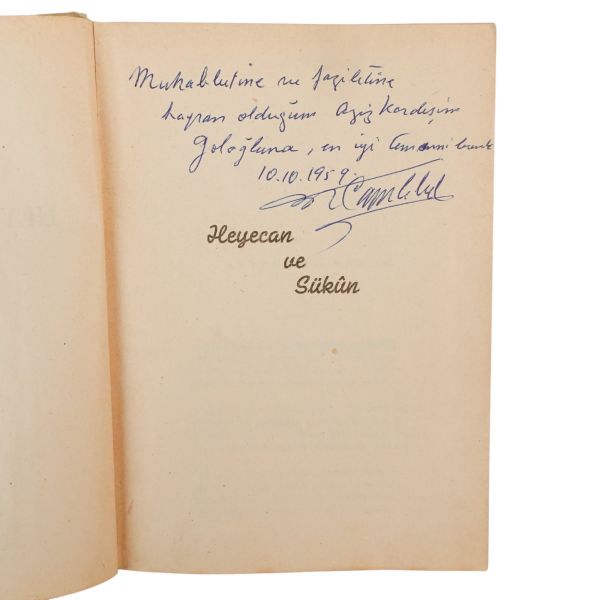 Muhabbetine ve faziletine
hayran olduğum aziz kardeşim
Goloğluna, en iyi temennilerimle
10.10.1959.
Heyecan
ve
Sükûn